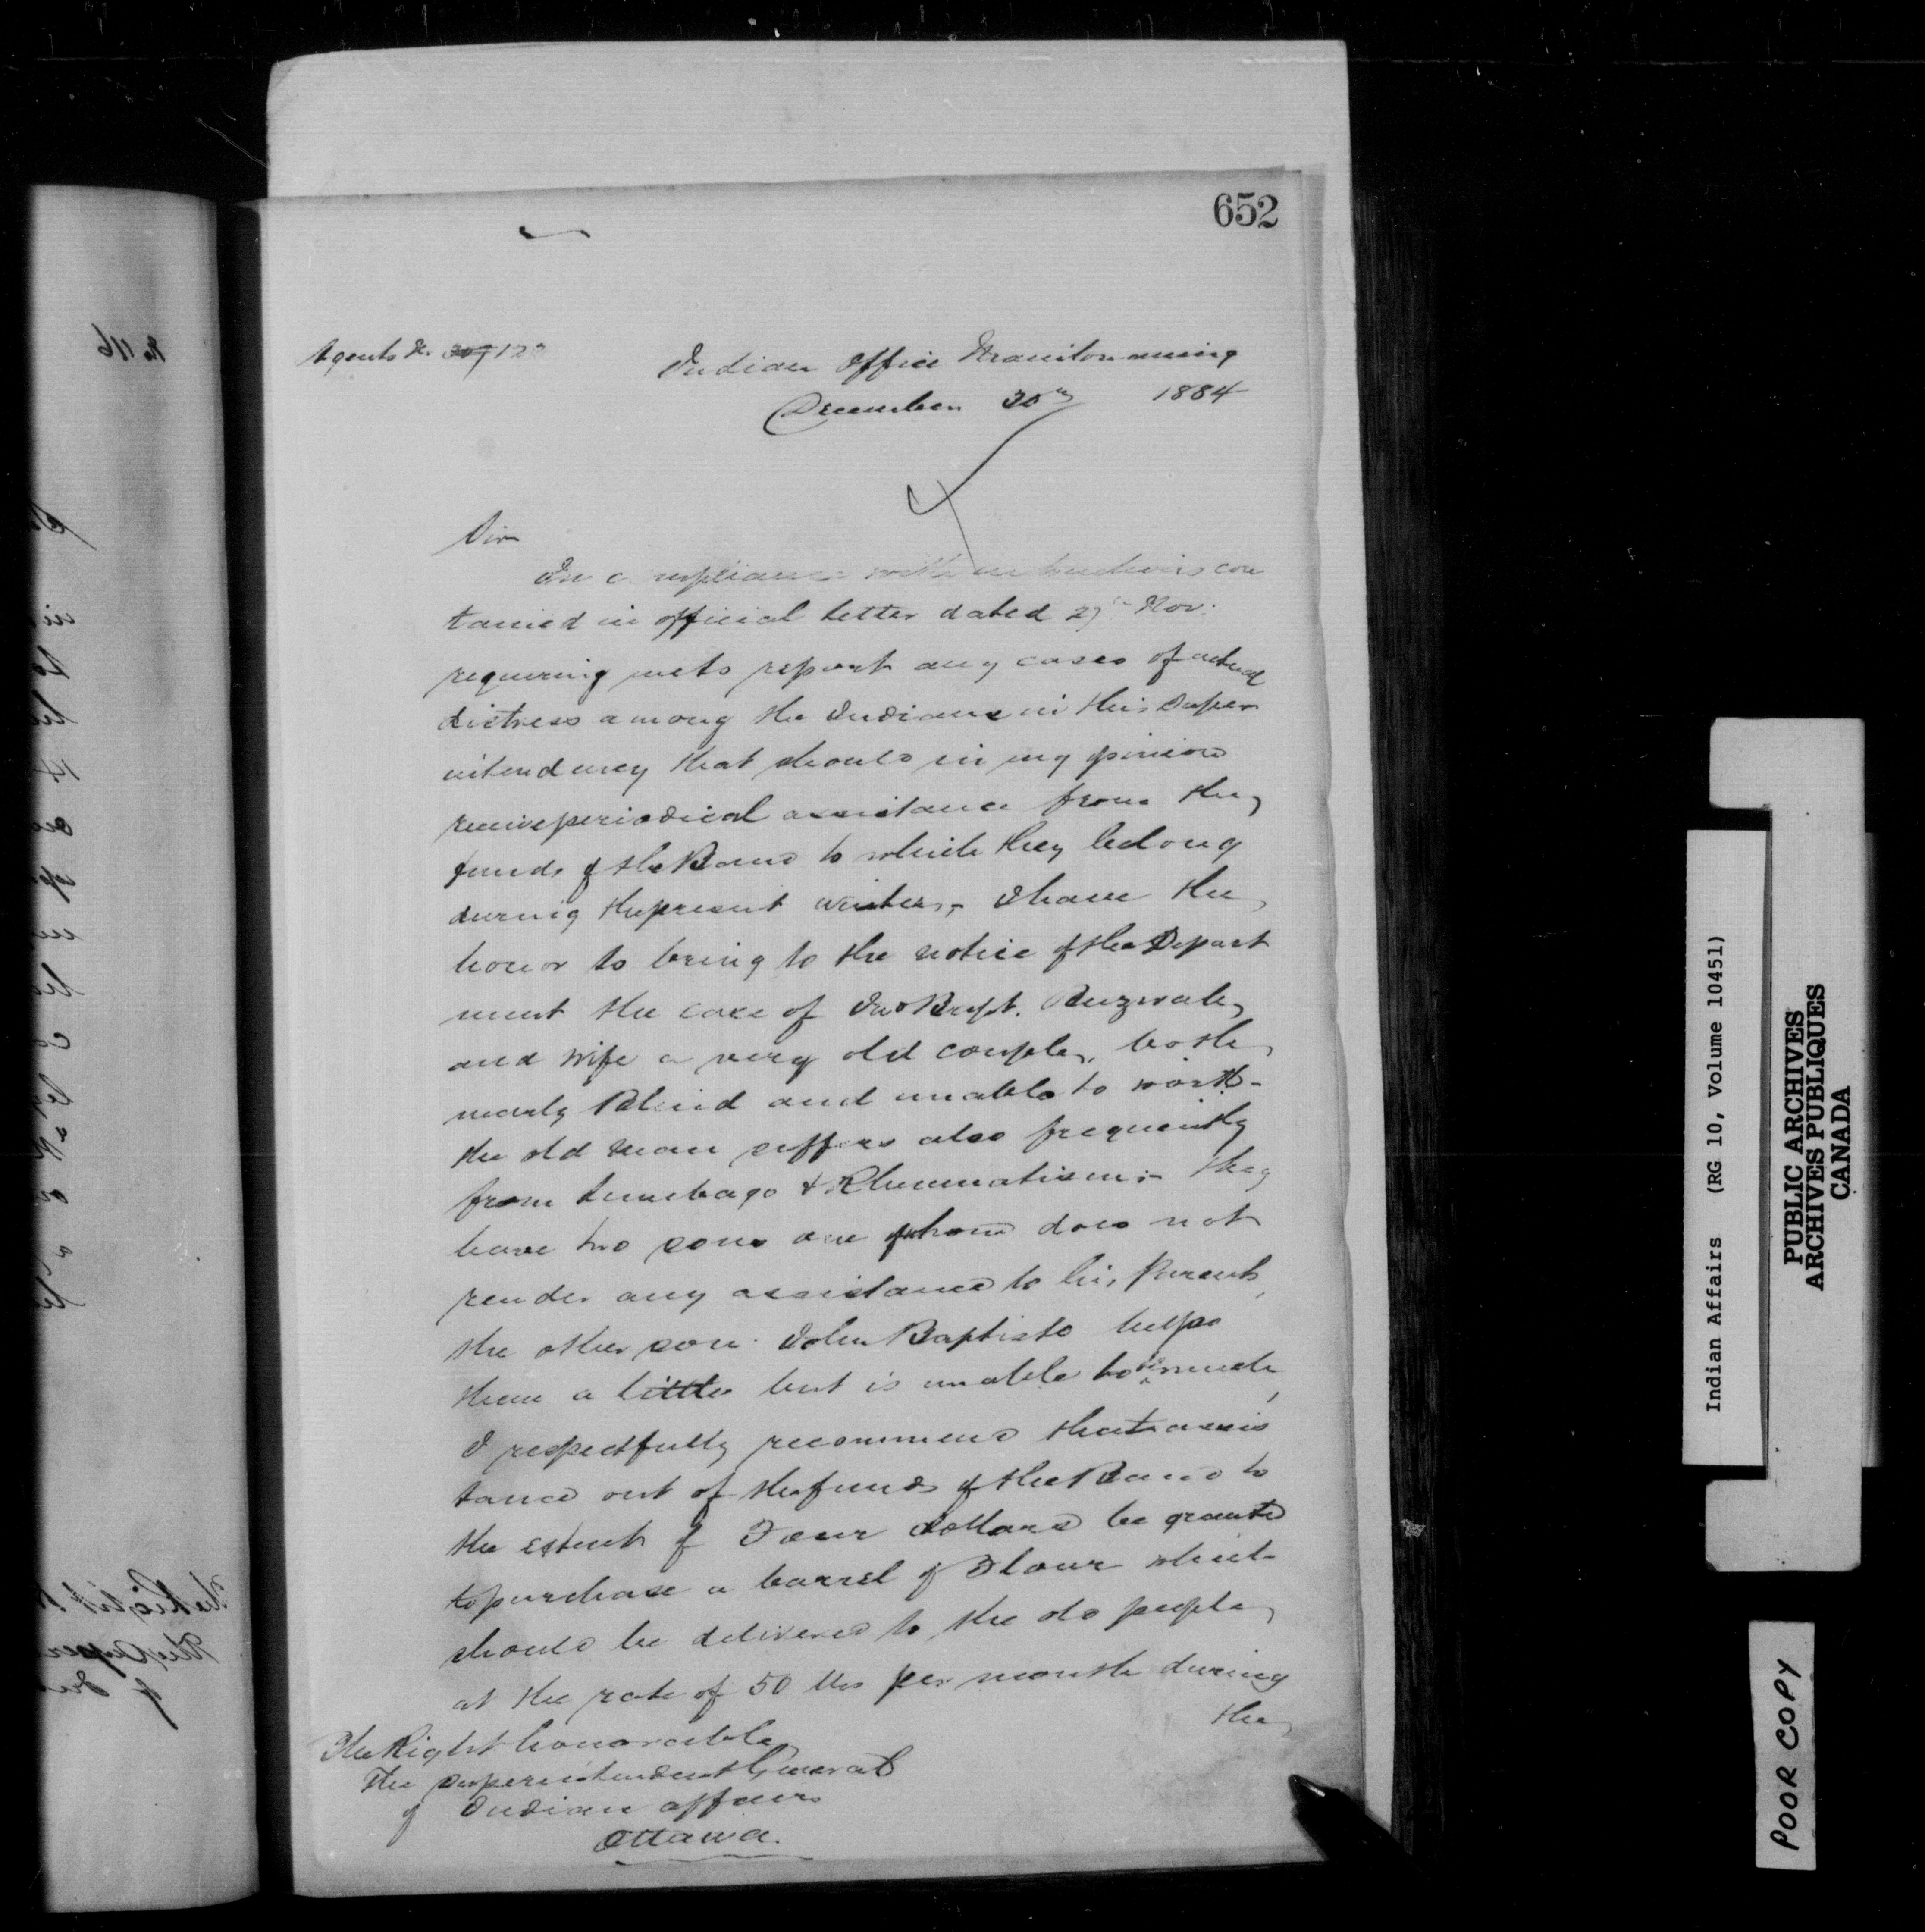 652
Agents No. 123
Indian Office Manitowaning
December 30th 1884
Sir
In compliance with instructions con
tained in official letter dated 27th Nov.
requiring me to report any cases of actual
distress among the Indians in this Super
intendency that should in my opinion
receive periodical assistance from the
funds of the Band to which they belong
during the present winter, - I have the
honor to bring to the notice of the Depart
ment the case of Bapt.
and wife a very old couple, both
nearly Blind and unable to work -
the old man suffers also frequently
from Lumbago & Rheumatism; - they
have two sons one of whom does not
render any assistance to his Parents,
the other son John Baptiste helps
them a little but is unable to do much,
I respectfully recommend that assis
tance out of the funds of the Band to
the extent of Four dollars be granted
to purchase a barrel of Flour which
should be delivered to the old people
at the rate of 50 lbs per month during
the
The Right honourable
The Superintendent General
of Indian affairs
Ottawa.
No 116
The Right
The Super
of Ind
Indian Affairs (RG 10, Volume 10451)
PUBLIC ARCHIVES
ARCHIVES PUBLIQUES
CANADA
POOR COPY